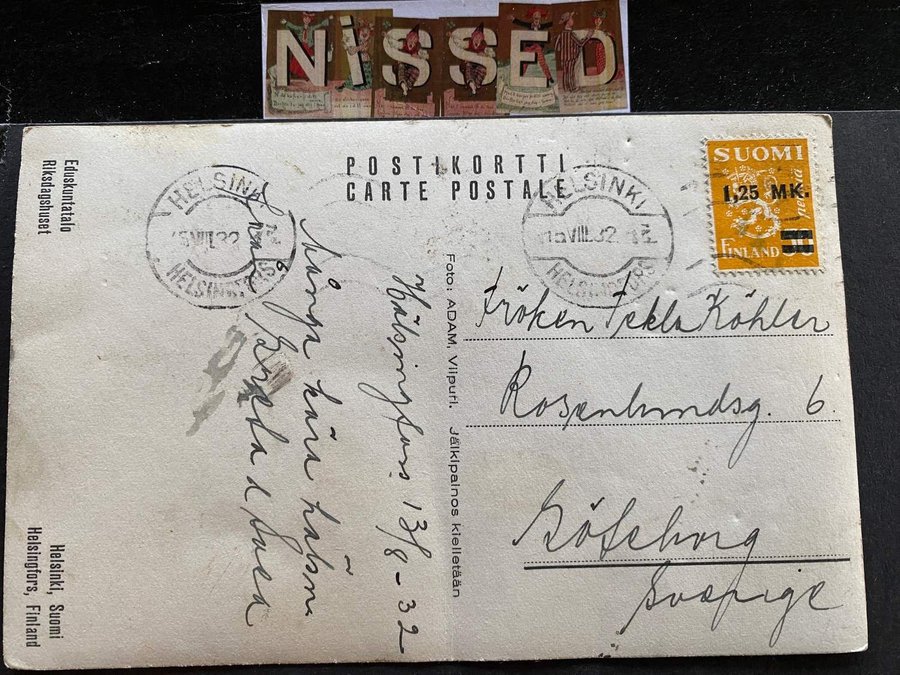 NiSSED
POSTIKORTTI
CARTE POSTALE
SUOMI
1,25 MK.
FINLAND
HELSINKI
15.VIII.32
HELSINGFORS
HELSINKI
15.VIII.32
HELSINGFORS
Eduskuntatalo
Riksdagshuset
Helsinki, Suomi
Helsingfors, Finland
Foto: ADAM, Viipuri. Jälkipainos kielletään
Hälsingfors 13/8-32
Många kära hälsn.
Svea
Fröken Tekla Köhler
Rosenlundsg. 6.
Göteborg
Sverige